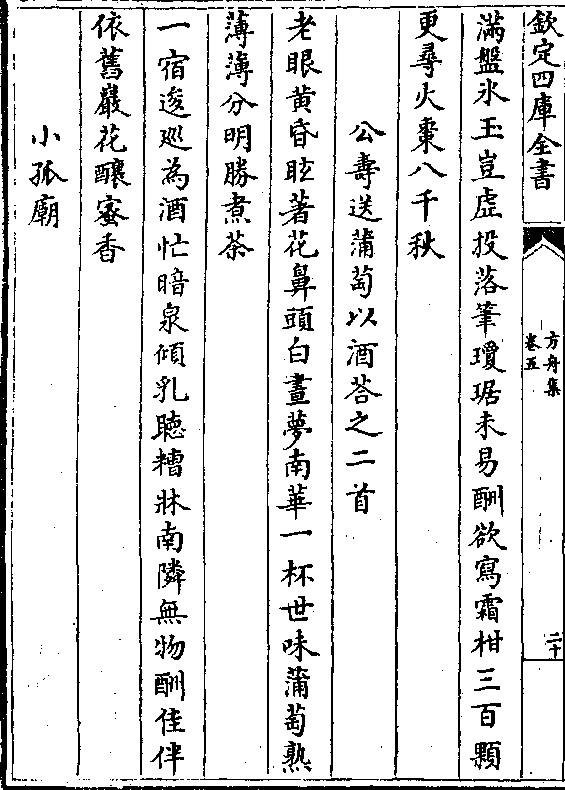 欽定四庫全書
方舟集
卷五
二十
滿盤氷玉豈虛投落筆瓊琚未易酬欲寫霜柑三百顆
更尋火棗八千秋
公壽送蒲萄以酒荅之二首
老眼黄昏眩著花鼻頭白晝夢南華一杯世味蒲萄熟
薄薄分明勝煮茶
一宿逡廵為酒忙暗泉傾乳聴糟牀南隣無物酬佳伴
依舊巖花釀蜜香
小孤廟